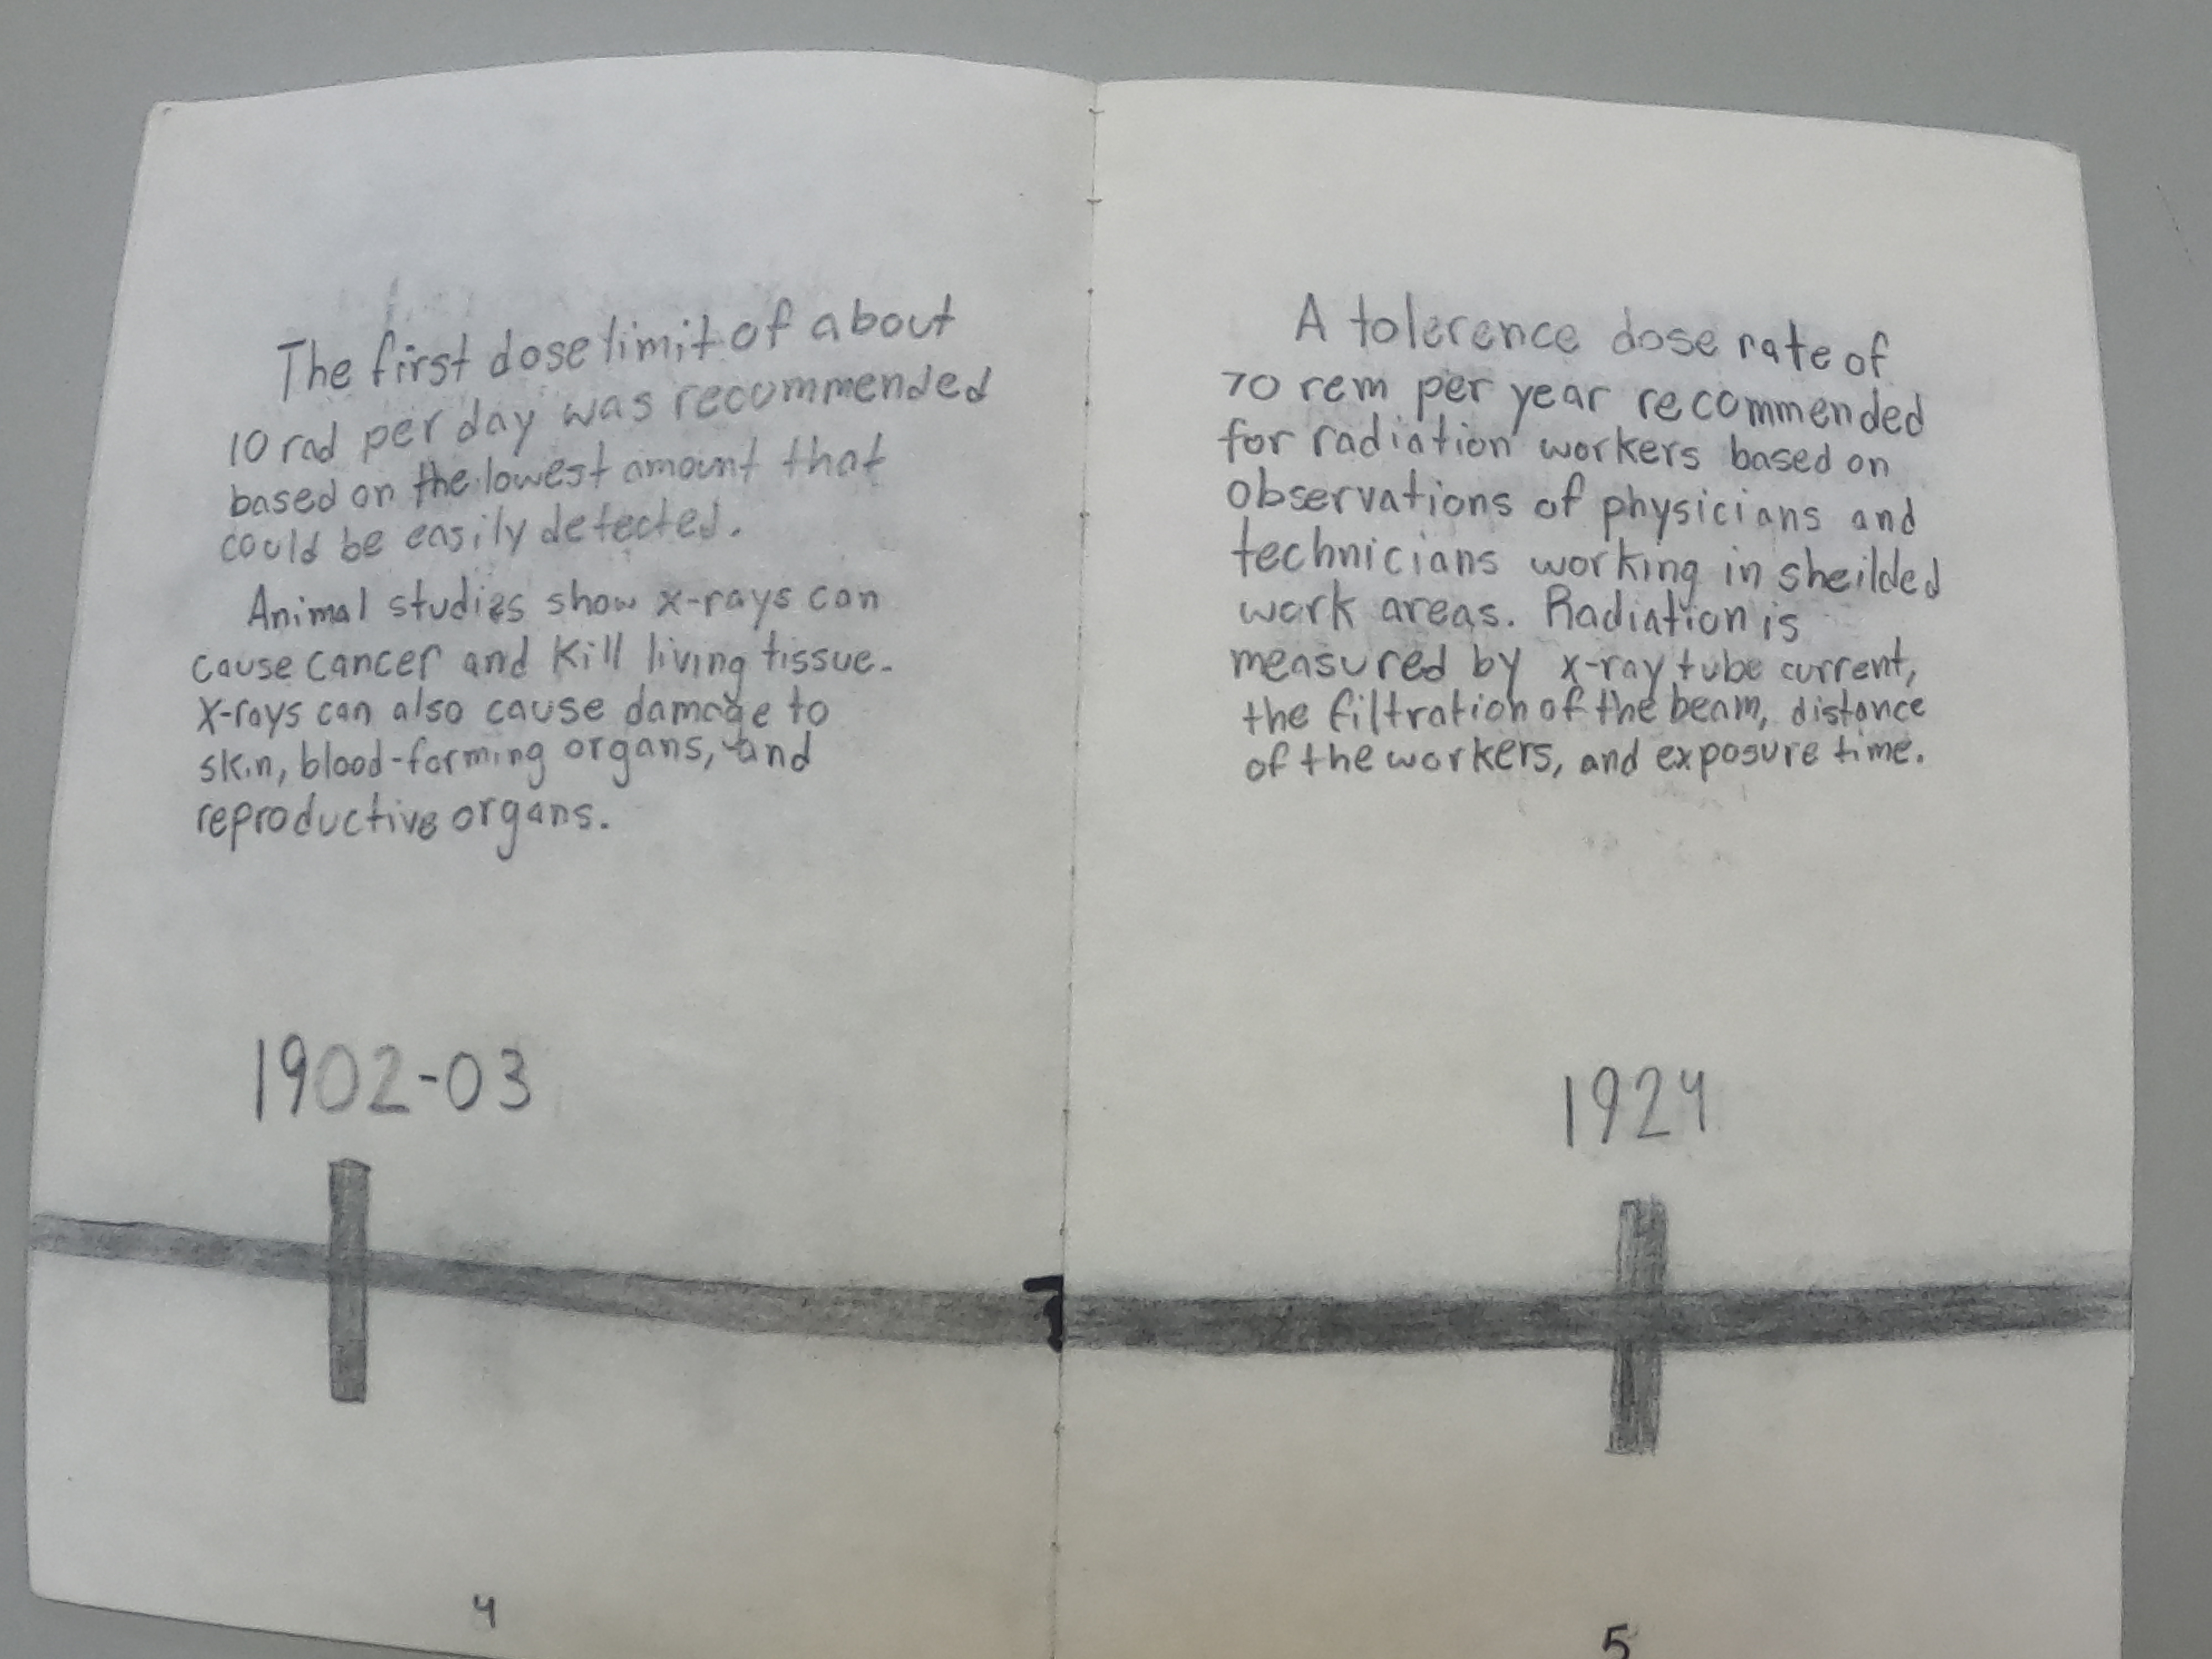 The first dose limit of about
10 rad per day was recommended
based on the lowest amount that
could be easily detected.
Animal studies show x-rays can
cause cancer and kill living tissue.
X-rays can also cause damage to
skin, blood-forming organs, and
reproductive organs.
1902-03
4
A tolerence dose rate of
70 rem per year recommended
for radiation workers based on
observations of physicians and
technicians working in sheilded
work areas. Radiation is
measured by x-ray tube current,
the filtration of the beam, distance
of the workers, and exposure time.
1924
5